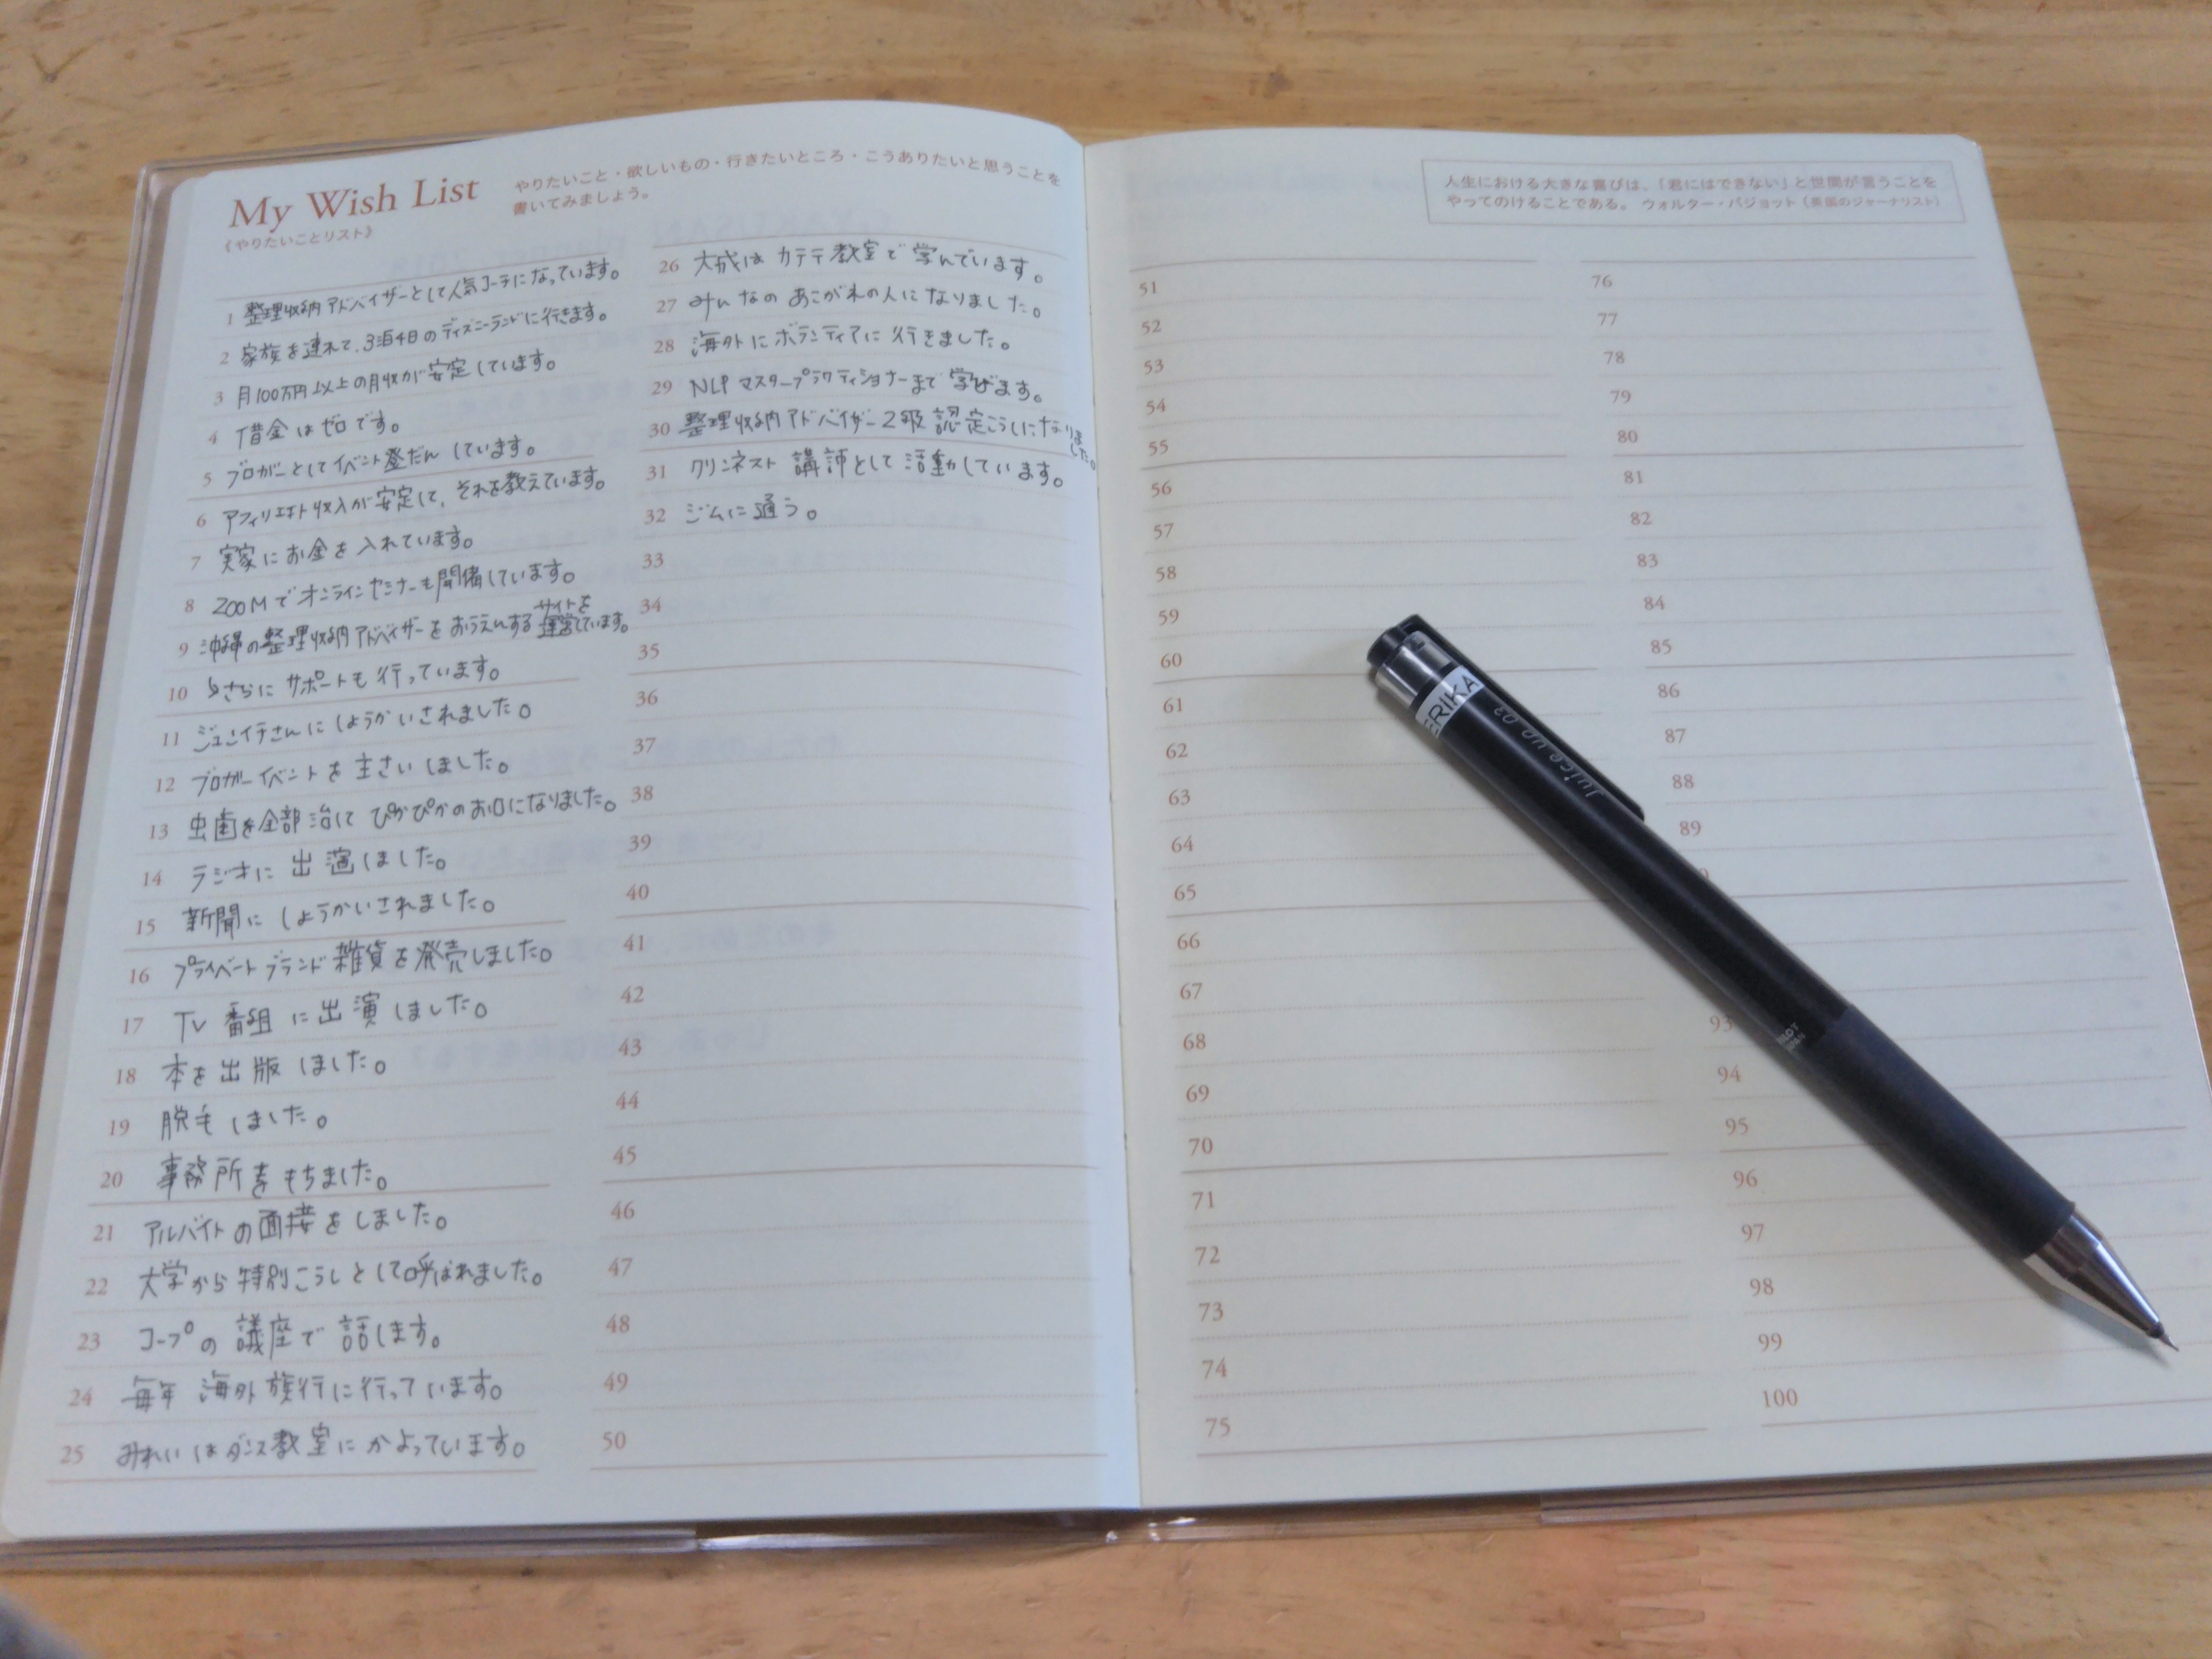 My Wish List
《やりたいことリスト》
やりたいこと・欲しいもの・行きたいところ・こうありたいと思うことを
書いてみましょう。
1 整理収納アドバイザーとして人気コーチになっています。
2 家族を連れて、3泊4日のディズニーランドに行きます。
3 月100万円以上の月収が安定しています。
4 借金はゼロです。
5 ブロガーとしてイベント登だんしています。
6 アフィリエイト収入が安定して、それを教えています。
7 実家にお金を入れています。
8 ZOOMでオンラインセミナーも開催しています。
9 沖縄の整理収納アドバイザーをおうえんするサイトを運営しています。
10 さらにサポートも行っています。
11 ジュンイチさんにしょうかいされました。
12 ブロガーイベントを主さいしました。
13 虫歯を全部治してぴかぴかのお口になりました。
14 ラジオに出演しました。
15 新聞にしょうかいされました。
16 プライベートブランド雑貨を発売しました。
17 TV番組に出演しました。
18 本を出版しました。
19 脱毛しました。
20 事務所をもちました。
21 アルバイトの面接をしました。
22 大学から特別こうしとして呼ばれました。
23 コープの講座で話します。
24 毎年海外旅行に行っています。
25 みれいはダンス教室にかよっています。
26 大成はカテテ教室で学んでいます。
27 みんなのあこがれの人になりました。
28 海外にボランティアに行きました。
29 NLPマスタープラクティショナーまで学びます。
30 整理収納アドバイザー2級認定こうしになりました。
31 クリンネスト講師として活動しています。
32 ジムに通う。
33
34
35
36
37
38
39
40
41
42
43
44
45
46
47
48
49
50
人生における大きな喜びは、「君にはできない」と世間が言うことを
やってのけることである。 ウォルター・バジョット（英国のジャーナリスト）
51
52
53
54
55
56
57
58
59
60
61
62
63
64
65
66
67
68
69
70
71
72
73
74
75
76
77
78
79
80
81
82
83
84
85
86
87
88
89
93
94
95
96
97
98
99
100
ERIKA
Juice up 03